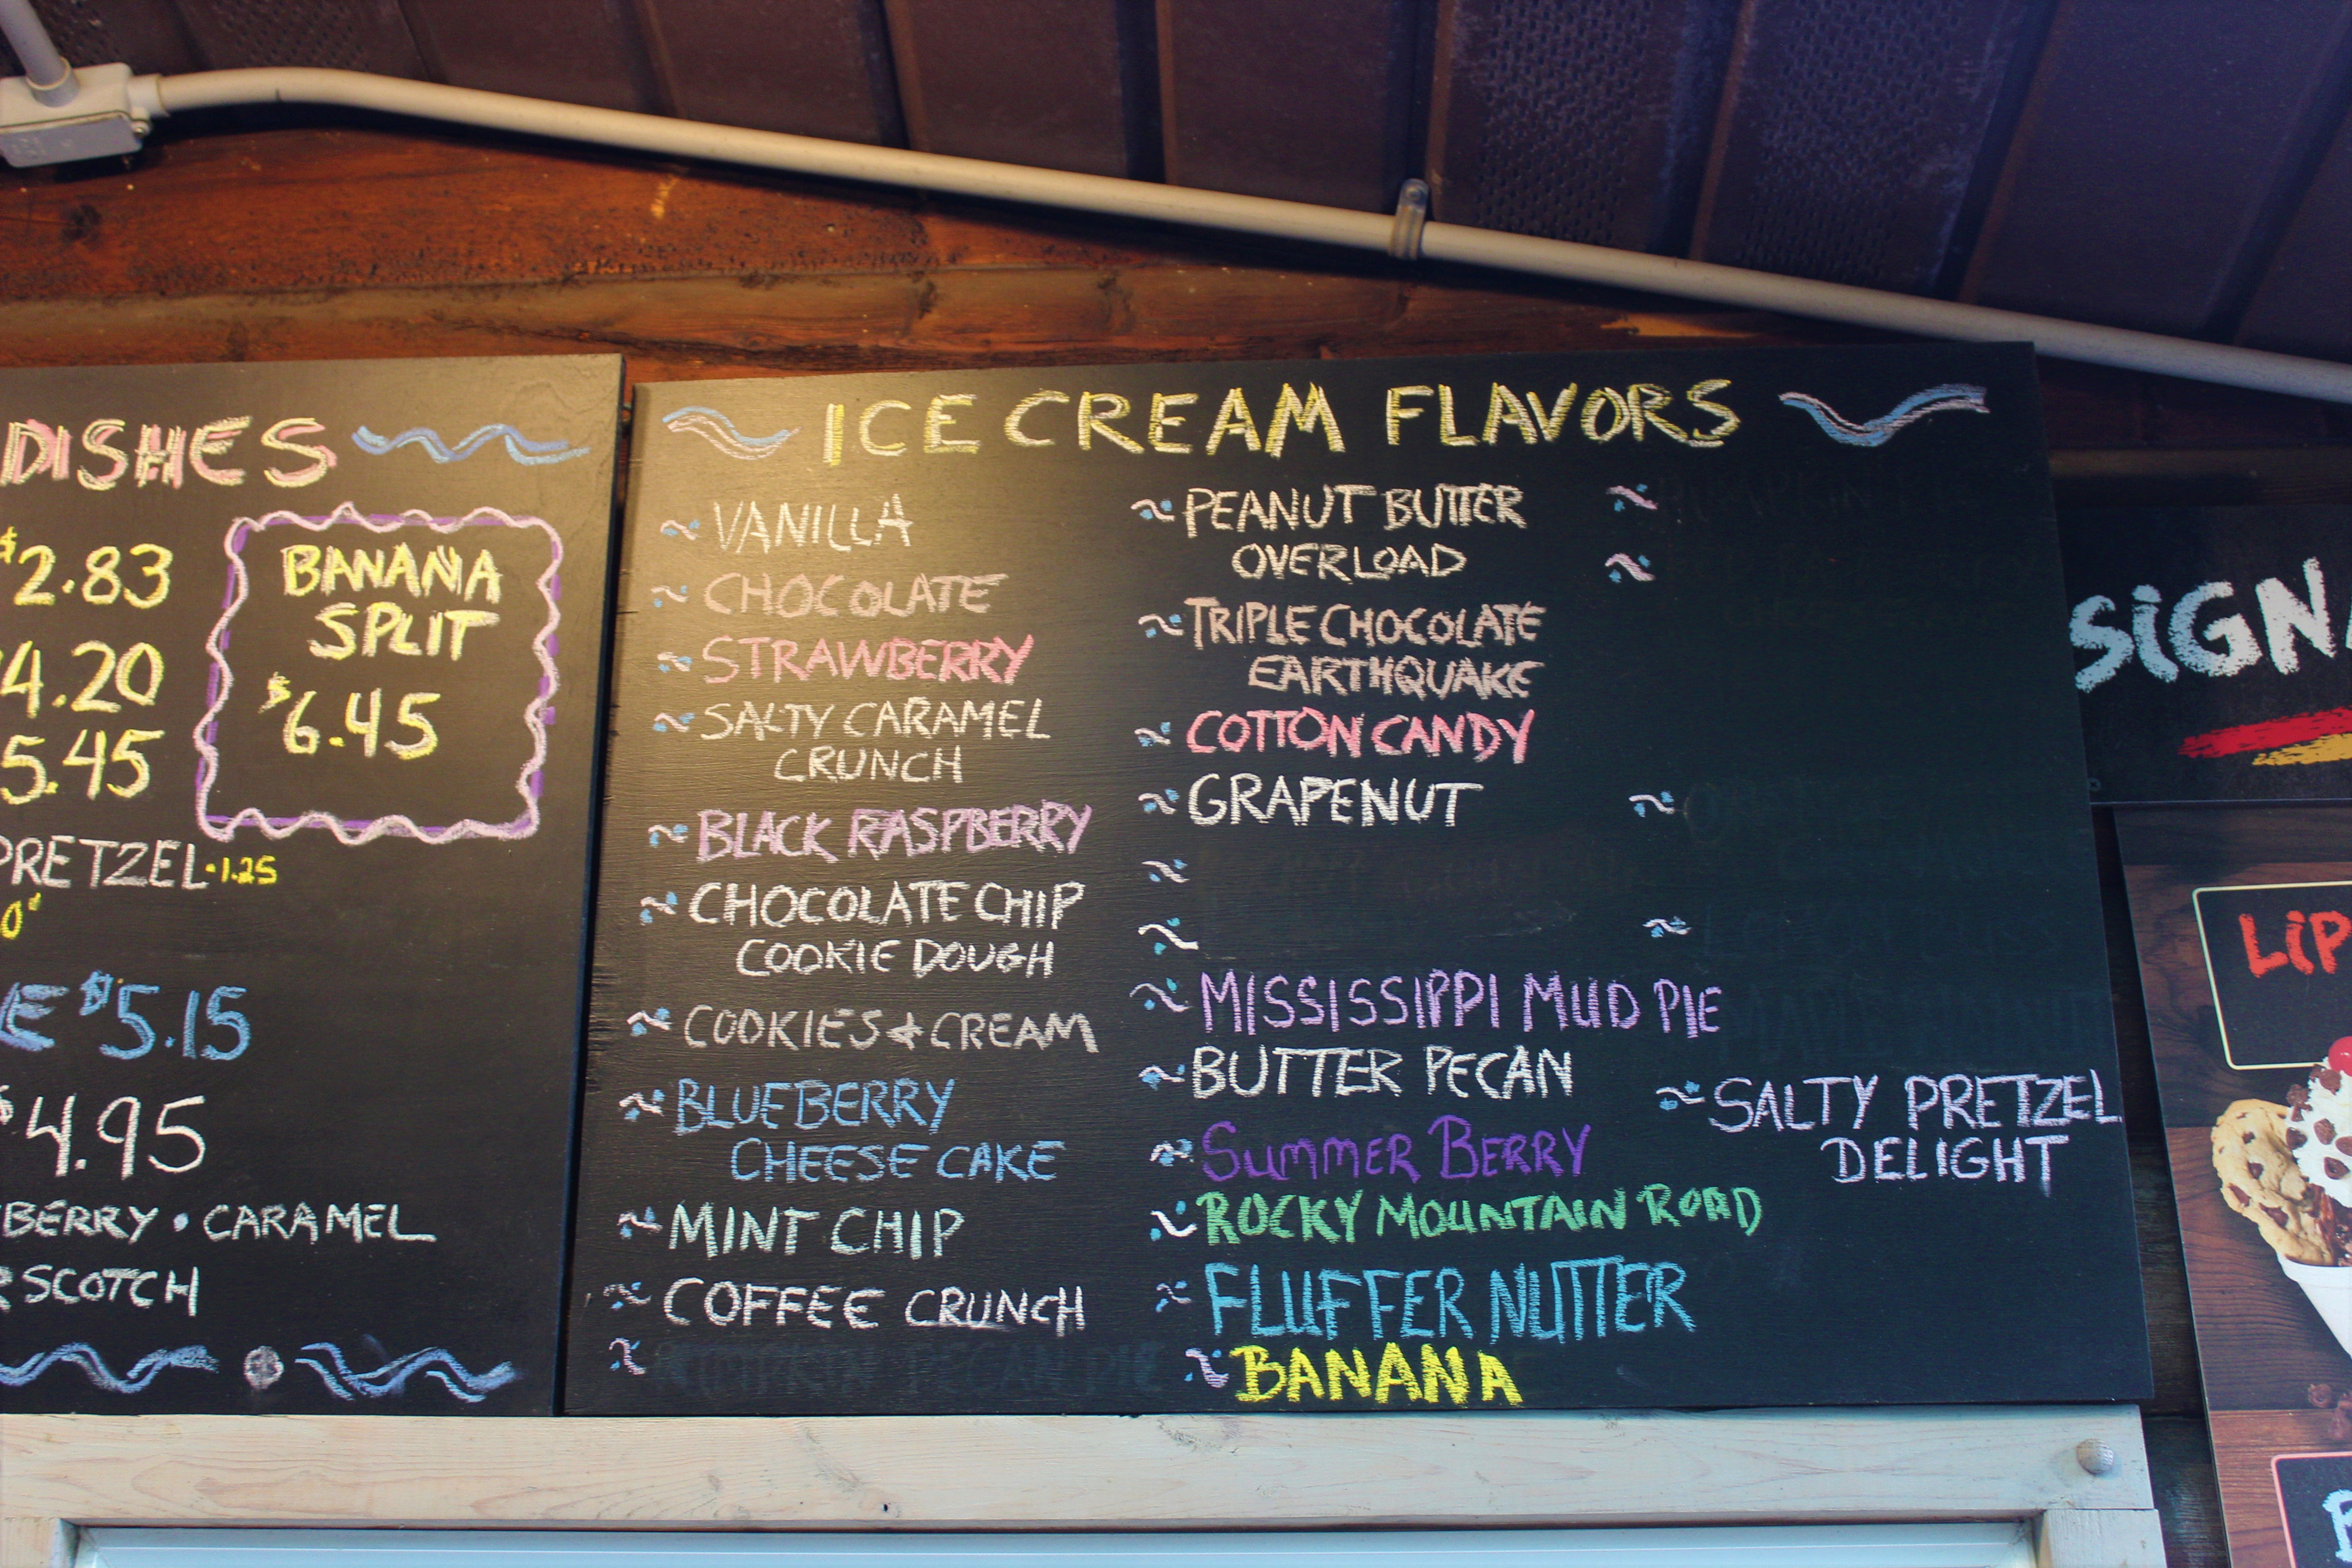 DISHES
$2.83
4.20
5.45
BANANA
SPLIT
$6.45
PRETZEL · 1.25
E $5.15
$4.95
BERRY • CARAMEL
SCOTCH
ICE CREAM FLAVORS
VANILLA
CHOCOLATE
STRAWBERRY
SALTY CARAMEL
CRUNCH
BLACK RASPBERRY
CHOCOLATE CHIP
COOKIE DOUGH
COOKIES & CREAM
BLUEBERRY
CHEESE CAKE
MINT CHIP
COFFEE CRUNCH
PEANUT BUTTER
OVERLOAD
TRIPLE CHOCOLATE
EARTHQUAKE
COTTON CANDY
GRAPENUT
MISSISSIPPI MUD PIE
BUTTER PECAN
SUMMER BERRY
ROCKY MOUNTAIN ROAD
FLUFFER NUTTER
BANANA
SALTY PRETZEL
DELIGHT
SIGN
LIP